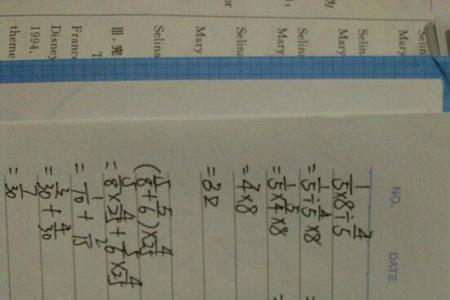 Selin
Mary
Selina
Mary
Selina
Mary
Selina
Mary
Selina
III. 完
T
France
Disney
1994.
theme
NO. DATE
1/5×8÷4/5
=1/5÷4/5×8
=1/5×5/4×8
=4×8
=32
(5/8+5/6)×4/25
=5/8×4/25+5/6×4/25
=1/10+2/15
=3/30+4/30
=7/30